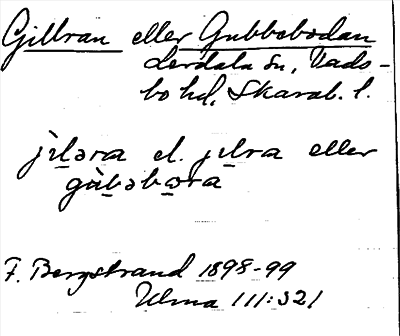 Gillran eller Gubbebodan
Lerdala sn, Vads-
bo hd, Skarab. l.
jìləra el. jılra eller
gùbəbəra
F. Bergstrand 1898-99
Ulma 111:321